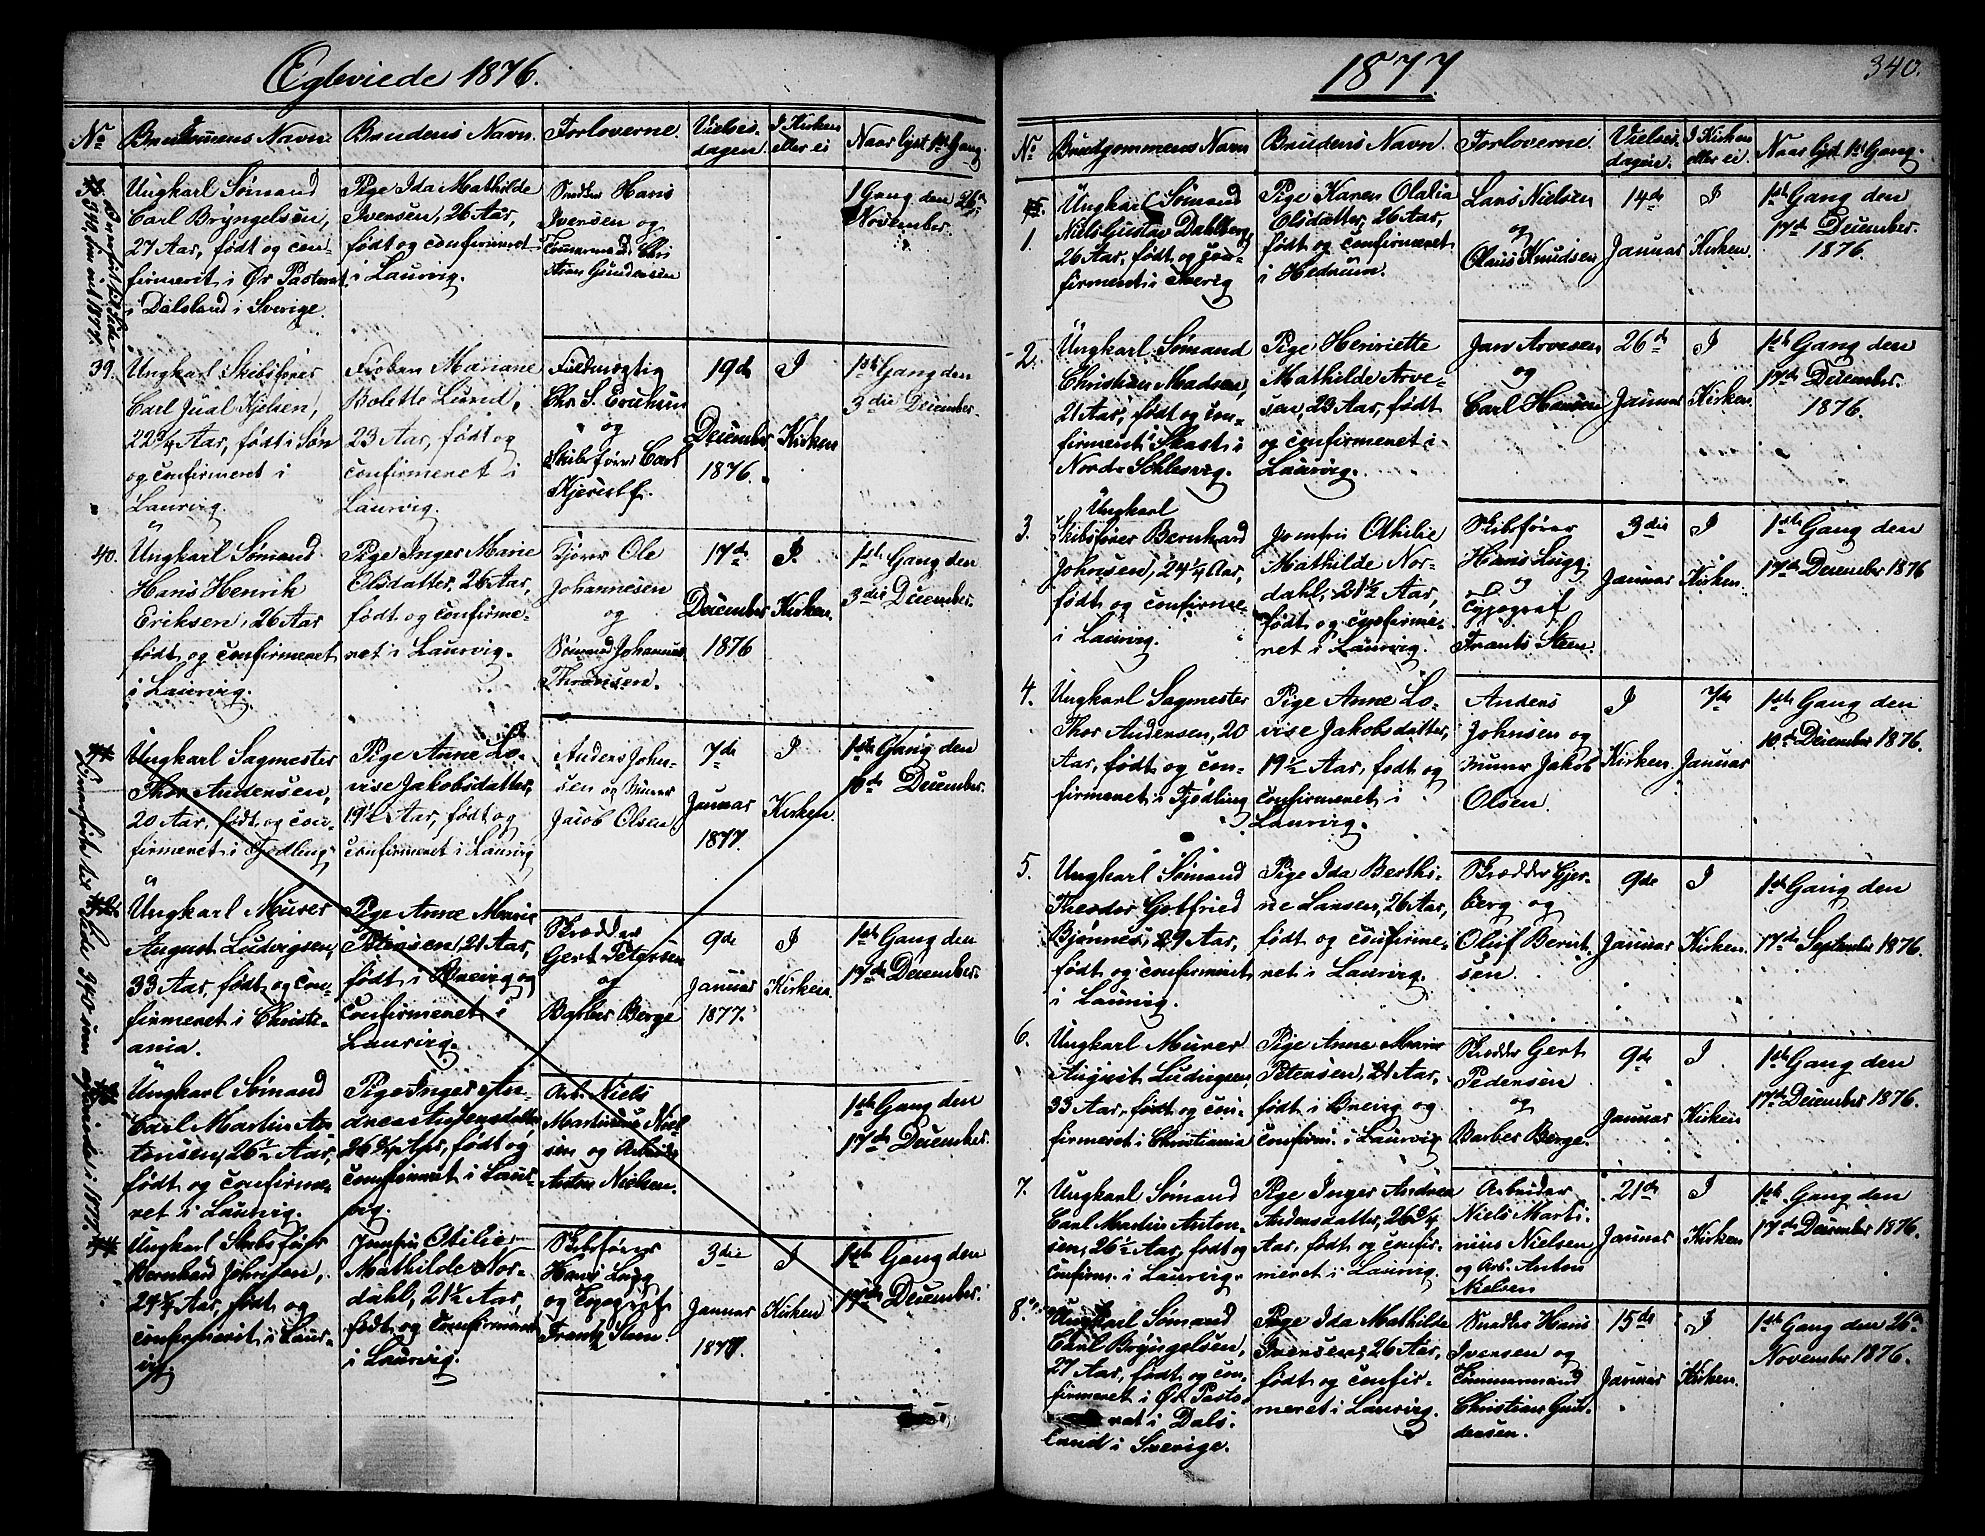 Egteviede 1876.
No
Brudgommens Navn.
Brudens Navn.
Forloverne.
Vielses-
dagen.
I Kirken
eller ei
Naar lyst 1ste Gang.
Ungkarl Sømand
Carl Bryngelsen,
27 Aar, født og con-
firmeret i Ør Pastorat
i Dalsland i Sverige.
Pige Ida Mathilde
Iversen, 26 Aar,
født og confirmeret
i Laurvig.
Snedker Hans
Iversen og
Tømmermd. Chri
stian Gundersen
1 Gang den 26de
November.
39.
Ungkarl Skibsfører
Carl Juul Kjelsen,
22 3/4 Aar, født i Søn
og confirmeret i
Laurvig.
Frøken Mariane
Bolette Lund,
23 Aar, født og
confirmeret i
Laurvig.
Fuldmægtig
Chr. S. Erichsen
og
Skibsfører Carl
Kjerulf.
19de
December
1876.
I
Kirken
1ste Gang den
3die December.
40.
Ungkarl Sømand
Hans Henrik
Eriksen, 26 Aar
født og confirmeret
i Laurvig.
Pige Inger Marie
Olsdatter, 26 Aar,
født og confirme-
ret i Laurvig.
Ole
Johannesen
og
Sømand Johannes
17de
December
1876
I
Kirken.
1ste Gang den
3die December.
Ungkarl Sagmester
Thor Andersen,
20 Aar, født og con-
firmeret i Tjødling
Pige Anne Lo-
vise Jakobsdatter,
19 1/2 Aar, født og
confirmeret i Laurvig
Anders John-
sen og Murer
Jacob Olsen
7de
Januar
1877.
I
Kirken.
1ste Gang den
10de December.
Ungkarl Murer
August Ludvigsen,
33 Aar, født og con-
firmeret i Christi-
ania.
Pige Anne Marie
Petersen, 21 Aar,
født i Brevig og
confirmeret i
Laurvig.
Skrædder
Gert Petersen
og
Barber Berge
9de
Januar
1877.
I
Kirken.
1ste Gang den
17de December.
Ungkarl Sømand
Carl Martin An-
tonsen, 26 1/2 Aar,
født og confirme-
ret i Laurvig.
Pige Inger An-
drea Andersdatter
26 3/4 Aar, født og
confirmeret i Laur-
vig.
Arb. Niels
Martinius Niel-
sen og Arbeider
Anton Nielsen.
1ste Gang den
17de December.
Ungkarl Skibsfører
Bernhard Johnsen,
24 1/4 Aar, født og
confirmeret i Laur-
vig.
Jomfru Otilie
Mathilde Nor-
dahl, 21 1/2 Aar,
født og confirmeret
i Laurvig.
Skibsfører
Hans Lugg
og Typograf
Frantz Steen
3die
Januar
1877.
I
Kirken
1ste Gang den
17de December.
1877
340.
No
Brudgommens Navn
Brudens Navn.
Forloverne.
Vielses-
dagen.
I Kirken
eller ei
Naar lyst 1st Gang.
1.
Ungkarl Sømand
Niels Gustav Dahlberg,
26 Aar, født og con-
firmeret i Sverig
Pige Karen Olalia
Olsdatter, 26 Aar,
født og confirmeret
i Hedrum.
Lars Nielsen
og
Olaus Knudsen
14de
Januar
I
Kirken.
1ste Gang den
17de December.
1876.
2.
Ungkarl Sømand
Christian Madsen,
21 Aar, født og con-
firmeret i Skast i
Nord-Schlesvig.
Pige Henriette
Mathilde Arve-
sen, 23 Aar, født
og confirmeret i
Laurvig.
Jan Arvesen
og
Carl Hansen
26de
Januar
I
Kirken.
1ste Gang den
17de December.
1876.
3.
Ungkarl
Skibsfører Bernhard
Johnsen, 24 1/4 Aar,
født og confirme-
i Laurvig.
Jomfru Othilie
Mathilde Nor-
dahl, 21 1/2 Aar,
født og confirme-
ret i Laurvig.
Skibsfører
Hans Lugg
og
Typograf
Frants Steen
3die
Januar
I
Kirken.
1ste Gang den
17de December 1876
4.
Ungkarl Sagmester
Thor Andersen, 20
Aar, født og con-
firmeret i Tjødling
Pige Anne Lo-
vise Jakobsdatter,
19 1/2 Aar, født og
confirmeret i
Laurvig.
Anders
Johnsen og
Murer Jakob
Olsen.
I
Kirken.
7de
Januar
1ste Gang den
10de December 1876.
5.
Ungkarl Sømand
Theodor Gotfried
Bjønnes, 29 Aar,
født og confirmeret
i Laurvig.
Pige Ida Berthi-
ne Larsen, 26 Aar,
født og confirme-
ret i Laurvig.
Skrædder Gjer-
berg og
Oluf Bernt-
sen.
9de
Januar
I
Kirken.
1ste Gang den
17de September 1876.
6.
Ungkarl Murer
August Ludvigsen
33 Aar, født og con-
firmeret i Christiania
Pige Anne Marie
Petersen, 21 Aar,
født i Brevig og
confirm. i Laurvig
Skrædder Gert
Pedersen
og
Barber Berge.
9de
Januar
I
Kirken
1ste Gang den
17de December 1876.
7.
Ungkarl Sømand
Carl Martin Anton-
sen, 26 1/2 Aar, født og
confirm. i Laurvig.
Pige Inger Andrea
Andersdatter, 26 3/4
Aar, født og confir-
meret i Laurvig.
Arbeider
Niels Marti-
nius Nielsen
og Arb. Anton
Nielsen
21de
Januar
I
Kirken
1ste Gang den
17de December 1876.
8.
Ungkarl Sømand
Carl Bryngelsen,
27 Aar, født og con-
firmeret i Ør Pasto-
rat i Dals-
land i Sverige.
Pige Ida Mathilde
Iversen, 26 Aar,
født og confir-
meret i Laurvig.
Snedker Hans
Iversen og
Tømmermand
Christian Gun-
dersen.
15de
Januar
I
Kirken.
1ste Gang den 26de
November 1876.